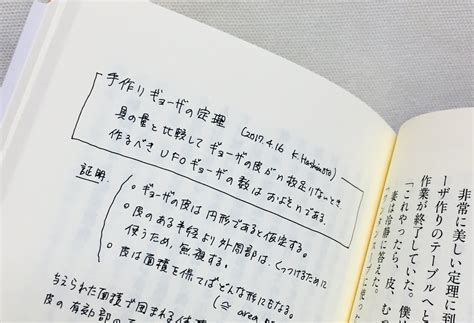 手作りギョーザの定理
(2017.4.16 K.Hashimoto)
具の量と比較してギョーザの皮がn枚足りないとき
作るべきUFOギョーザの数はおよそnである.
証明.
・ギョーザの皮は円形であると仮定する.
・皮のある半径より外周部は、くっつけるために
使うため、無視する.
・皮は面積を保てばどんな形にもなる.
(≅ area
与えられた面積で囲まれる体
皮の有効部の
非常に美しい定理に到
ーザ作りのテーブルへと
作業が終了していた。
「これやったら、皮、む
妻は冷静に答えた。